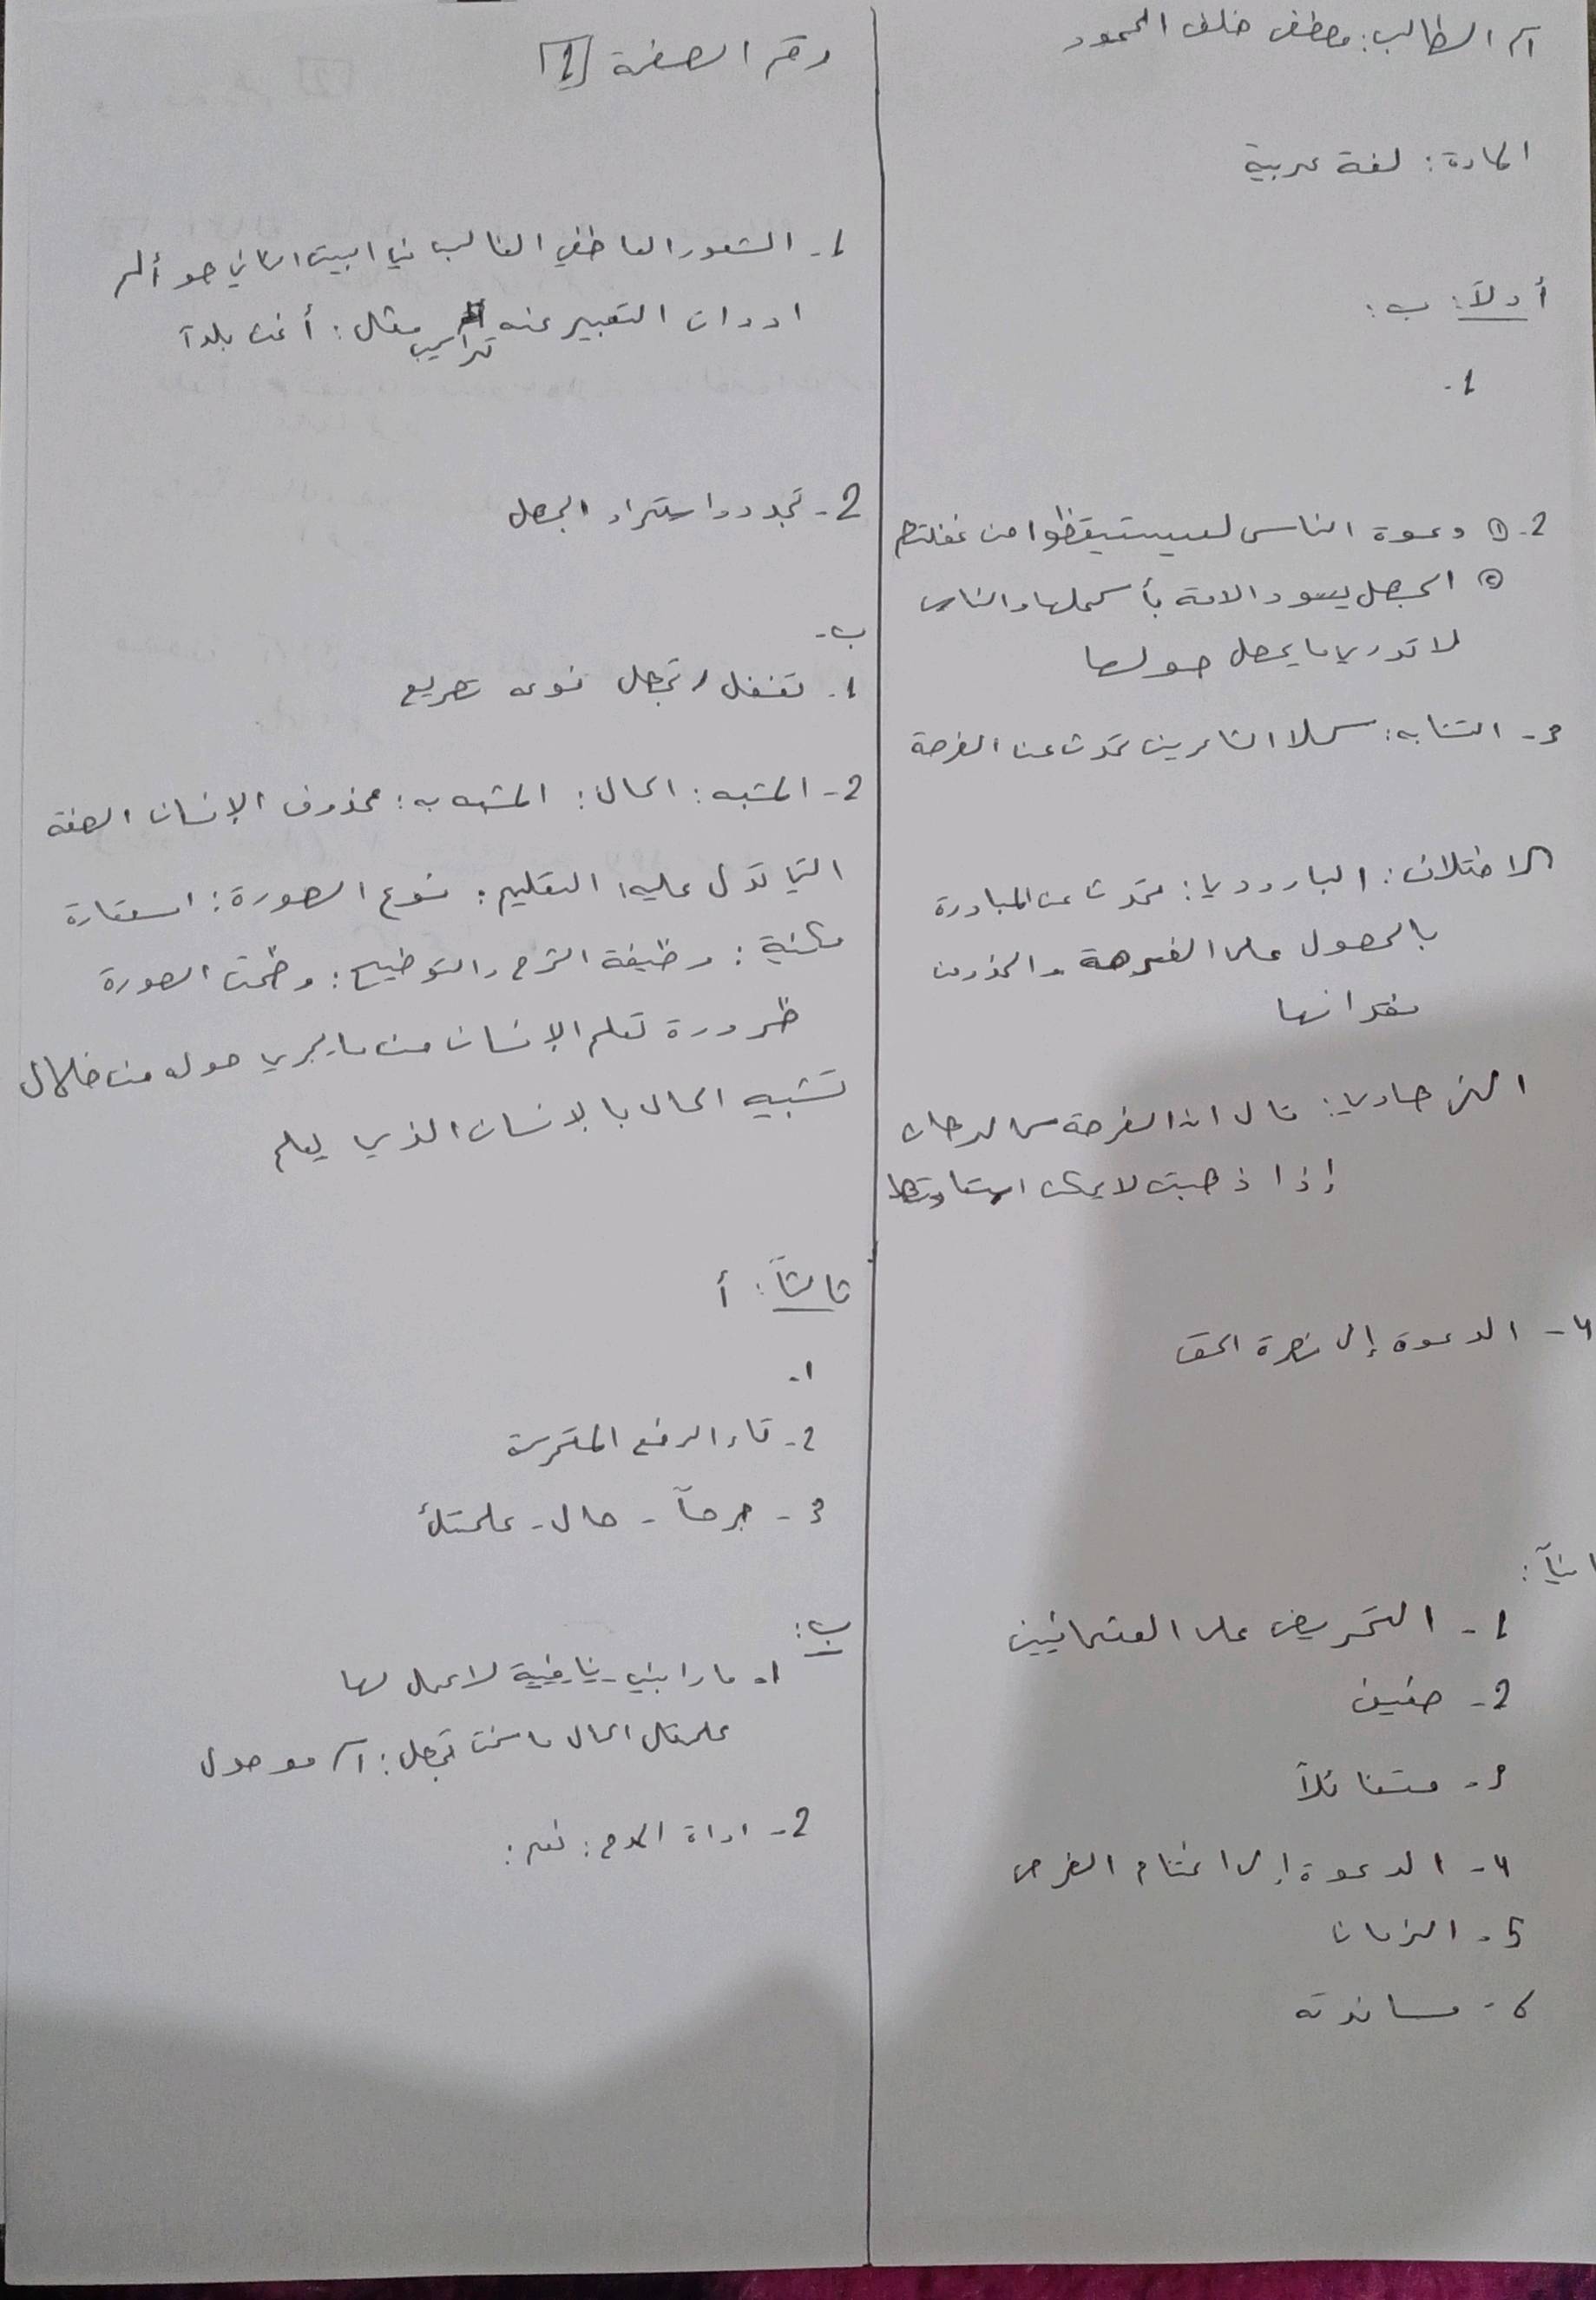 اسم الطالب: مصطفى خلف المحمود
المادة: لغة عربية
أولاً: ب:
1.
2. ① دعوة الناس لييستيقظوا من غفلتهم
② الجهل يسود الامة بأكملها والناس
لا تدري ما يحصل حولها
3- التشابه: كلا الشاعرين تحدث عن الفرصة
الاختلاف: البارودي: تحدث عن المبادرة
بالحصول على الفرصة والحذر من
فقدانها
قال ان الفرصة
إذا ذهبت لا يمكن استعادتها
4- الدعوة إلى نصرة الحق
ثانياً:
1- التحريض على العثمانيين
2- خفيف
3- متفائلاً
4- الدعوة إلى اغتنام الفرص
5- الزمان
6- مساندته
رقم الصفحة [1]
1- الشعور العاطفي الغالب في البيت الثاني هو ألم
ادوات التعبير عنه تراكيب مثال: أغث بلداً
2- تجدد واستمرار الجهل
ب-
1- تغفل / تجهل نوعه تصريع
2- المشبه: الحال: المشبه به: محذوف الإنسان الصفة
التي تدل عليه: التعليم: نوع الصورة: استعارة
مكنية: وظيفة الشرح والتوضيح: وضحت الصورة
ضرورة تعلم الإنسان من ما يجري حوله من خلال
تشبيه الحال بالإنسان الذي يعلم
ثالثاً: أ
1.
2- تاء الرفع المتحركة
3- - حال - علمتك
ب:
1. ما رابني - نافية لا عمل لها
علمتك الحال ما كنت تجهل: اسم موصول
2- اداة المدح: نعم: